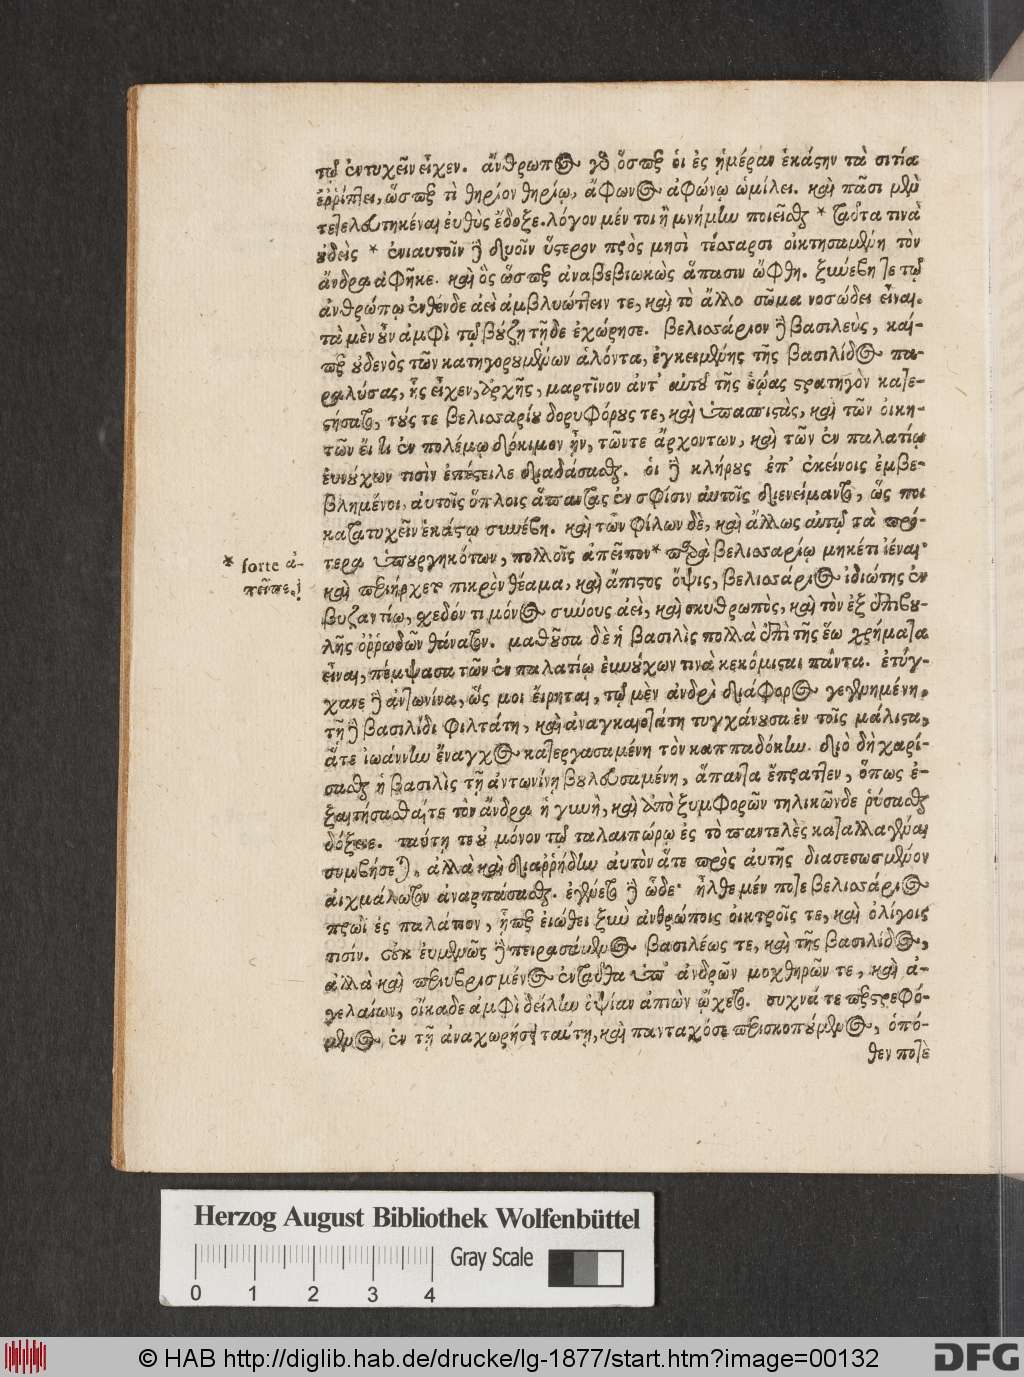 τῳ ἐντυχεῖν εἶχεν. ἄνθρωπος γὰρ ὅσπερ οἱ ἐς ἡμέραν ἑκάστην τὰ σιτία
ἐῤῥίπτει, ὥσπερ τὶ θηρίον θηρίῳ, ἄφωνος ἀφώνῳ ὡμίλει. καὶ πᾶσι μὲν
τετελευτηκέναι εὐθὺς ἔδοξε. λόγον μέν τοι ἢ μνήμην ποιεῖσθαι * ταῦτα τινὰ
οὐδεὶς * ἐνιαυτοῖν δὲ δυοῖν ὕστερον πρὸς μησὶ τέσσαρσι οἰκτησαμένη τὸν
ἄνδρα ἀφῆκε. καὶ ὃς ὥσπερ ἀναβεβιωκὼς ἅπασιν ὤφθη. ξυνέβη τε τῷ
ἀνθρώπῳ ἐνθένδε ἀεὶ ἀμβλυώττειν τε, καὶ τὸ ἄλλο σῶμα νοσώδει εἶναι.
τὰ μὲν οὖν ἀμφὶ τῷ βούζῃ τῇδε ἐχώρησε. βελισσάριον δὲ βασιλεὺς, καί-
περ οὐδενὸς τῶν κατηγορουμένων ἁλόντα, ἐγκειμένης τῆς βασιλίδος πα-
ραλύσας, ἧς εἶχεν, ἀρχῆς, μαρτῖνον ἀντ' αὐτοῦ τῆς ἑῴας στρατηγὸν κατε-
στήσατο, τούς τε βελισσαρίου δορυφόρους τε, καὶ ὑπασπιστὰς, καὶ τῶν οἰκη-
τῶν εἴ τι ἐν πολέμῳ δόκιμον ἦν, τῶντε ἄρχοντων, καὶ τῶν ἐν παλατίῳ
εὐνούχων τισὶν ἐπέστειλε διαδάσασθαι. οἱ δὲ κλήρους ἐπ' ἐκείνοις ἐμβε-
βλημένοι, αὐτοῖς ὅπλοις ἅπαντας ἐν σφίσιν αὐτοῖς διενείμαντο, ὥς ποι
κατατυχεῖν ἑκάστῳ συνέβη. καὶ τῶν φίλων δὲ, καὶ ἄλλως αὐτῷ τὰ πρό-
τερα ὑπουργηκότων, πολλοῖς ἀπεῖπον * παρὰ βελισσαρίῳ μηκέτι ἰέναι·
* forte ἀ-
πεῖπε.
καὶ περιήρχετο πικρὸν θέαμα, καὶ ἄπιστος ὄψις, βελισσάριος ἰδιώτης ἐν
βυζαντίῳ, σχεδόν τι μόνος σύννους ἀεὶ, καὶ σκυθρωπὸς, καὶ τὸν ἐξ ἐπιβου-
λῆς ὀῤῥωδῶν θάνατον. μαθοῦσα δὲ ἡ βασιλὶς πολλὰ ἐπὶ τῆς ἕω χρήματα
εἶναι, πέμψασα τῶν ἐν παλατίῳ εὐνούχων τινὰ κεκόμισται πάντα. ἐτύγ-
χανε δὲ ἀντωνίνα, ὥς μοι εἴρηται, τῷ μὲν ἀνδρὶ διάφορος γεγενημένη,
τῇ δὲ βασιλίδι φιλτάτη, καὶ ἀναγκαιοτάτη τυγχάνουσα ἐν τοῖς μάλιστα,
ἅτε ἰωάννην ἔναγχος κατεργασαμένη τὸν καππαδόκην. διὸ δὴ χαρί-
σασθαι ἡ βασιλὶς τῇ ἀντωνίνῃ βουλευσαμένη, ἅπαντα ἔπρατεν, ὅπως ἐ-
ξαιτήσασθαίτε τὸν ἄνδρα ἡ γυνὴ, καὶ ἀπὸ ξυμφορῶν τηλικῶνδε ῥύσασθαι
δόξειε. ταύτῃ τε οὐ μόνον τῷ ταλαιπώρῳ ἐς τὸ παντελὲς καταλλαγῆναι
συμβήσεται, ἀλλὰ καὶ διαῤῥήδην αὐτὸν ἅτε πρὸς αὐτῆς διασεσωσμένον
αἰχμάλωτον ἀναρπάσασθαι. ἐγένετο δὲ ὧδε· ἦλθε μέν ποτε βελισσάριος
πρωῒ ἐς παλάτιον, ᾗπερ εἰώθει ξὺν ἀνθρώποις οἰκτροῖς τε, καὶ ὀλίγοις
τισίν. οὐκ εὐμενῶς δὲ πειρασάμενος βασιλέως τε, καὶ τῆς βασιλίδος,
ἀλλὰ καὶ περιυβρισμένος ἐνταῦθα ὑπ' ἀνδρῶν μοχθηρῶν τε, καὶ ἀ-
γελαίων, οἴκαδε ἀμφὶ δείλην ὀψίαν ἀπιὼν ᾤχετο. συχνά τε περιστρεφό-
μενος ἐν τῇ ἀναχωρήσει ταύτῃ, καὶ πανταχόσε περισκοπούμενος, ὁπό-
θεν ποτὲ
Herzog August Bibliothek Wolfenbüttel
Gray Scale
0 1 2 3 4
© HAB http://diglib.hab.de/drucke/lg-1877/start.htm?image=00132
DFG